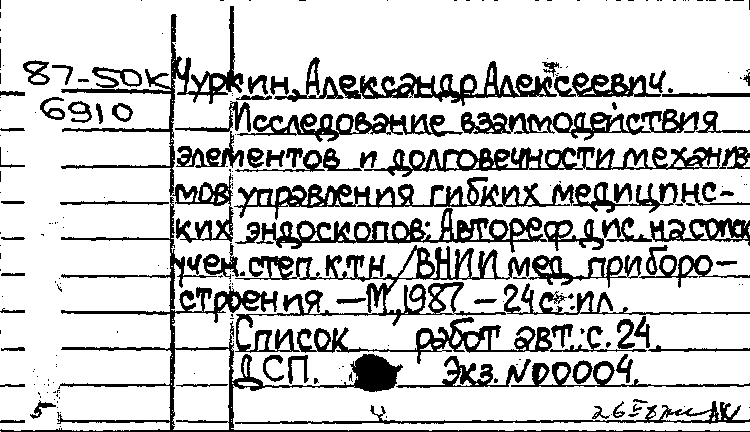 87-50к Чуркин, Александр Алексеевич.
6910 Исследование взаимодействия
элементов и долговечности механиз
мов управления гибких медицинс-
ких эндоскопов: Автореф. дис. на соиск
учен. степ. к.т.н. /ВНИИ мед. приборо-
строения. — М., 1987. — 24 с.: ил.
Список работ авт.: с. 24.
ДСП. Экз. N00004.
5 АК